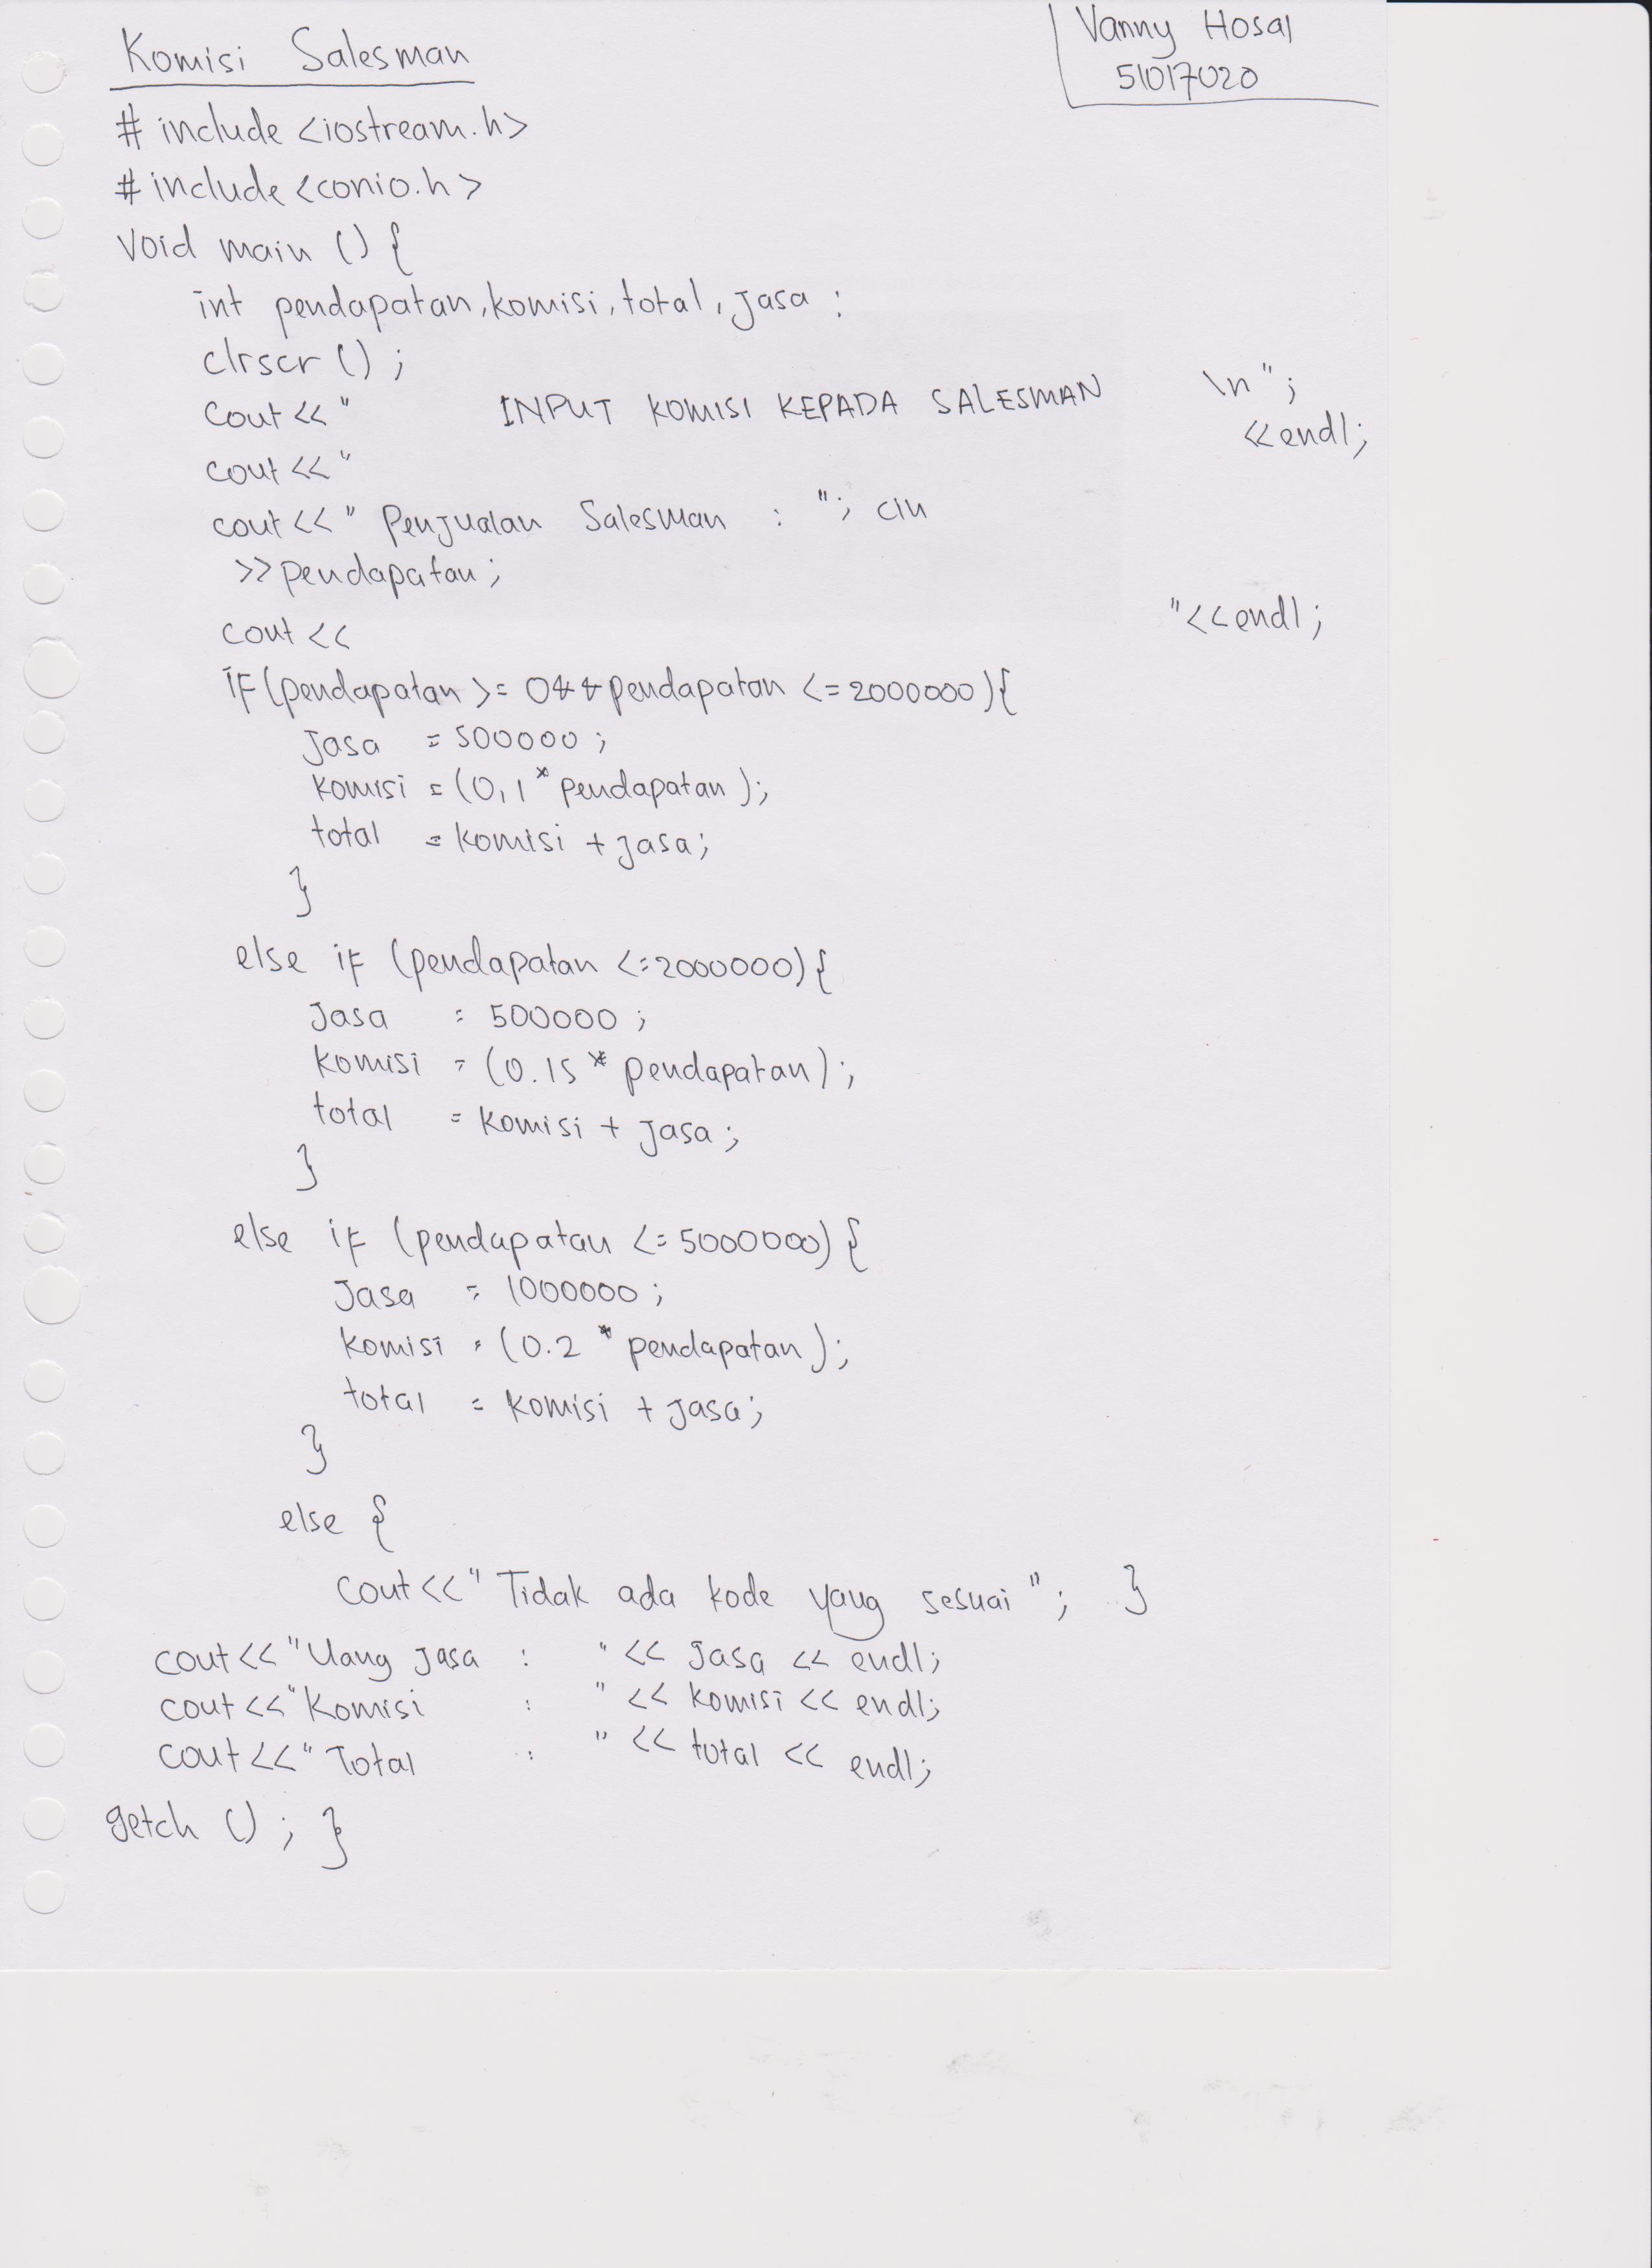 Komisi Salesman
Vanny Hosal
51017020
# include <iostream.h>
# include <conio.h>
Void main () {
int pendapatan, komisi, total, jasa :
clrscr () ;
Cout << " INPUT KOMISI KEPADA SALESMAN \n" ;
cout << " << endl;
cout << " Penjualan Salesman : "; cin
>> pendapatan ;
cout << "<< endl ;
if (pendapatan >= 0 && pendapatan <= 2000000) {
Jasa = 500000 ;
komisi = (0,1 * pendapatan );
total = komisi + jasa;
}
else if (pendapatan <= 2000000) {
Jasa = 500000 ;
komisi = (0.15 * pendapatan) ;
total = komisi + jasa ;
}
else if (pendapatan <= 5000000) {
Jasa = 1000000 ;
komisi = (0.2 * pendapatan ) ;
total = komisi + jasa ;
}
else {
cout << " Tidak ada kode yang sesuai " ; }
cout << "Uang jasa : " << Jasa << endl;
cout << "Komisi : " << komisi << endl;
cout << " Total : " << total << endl;
getch () ; }